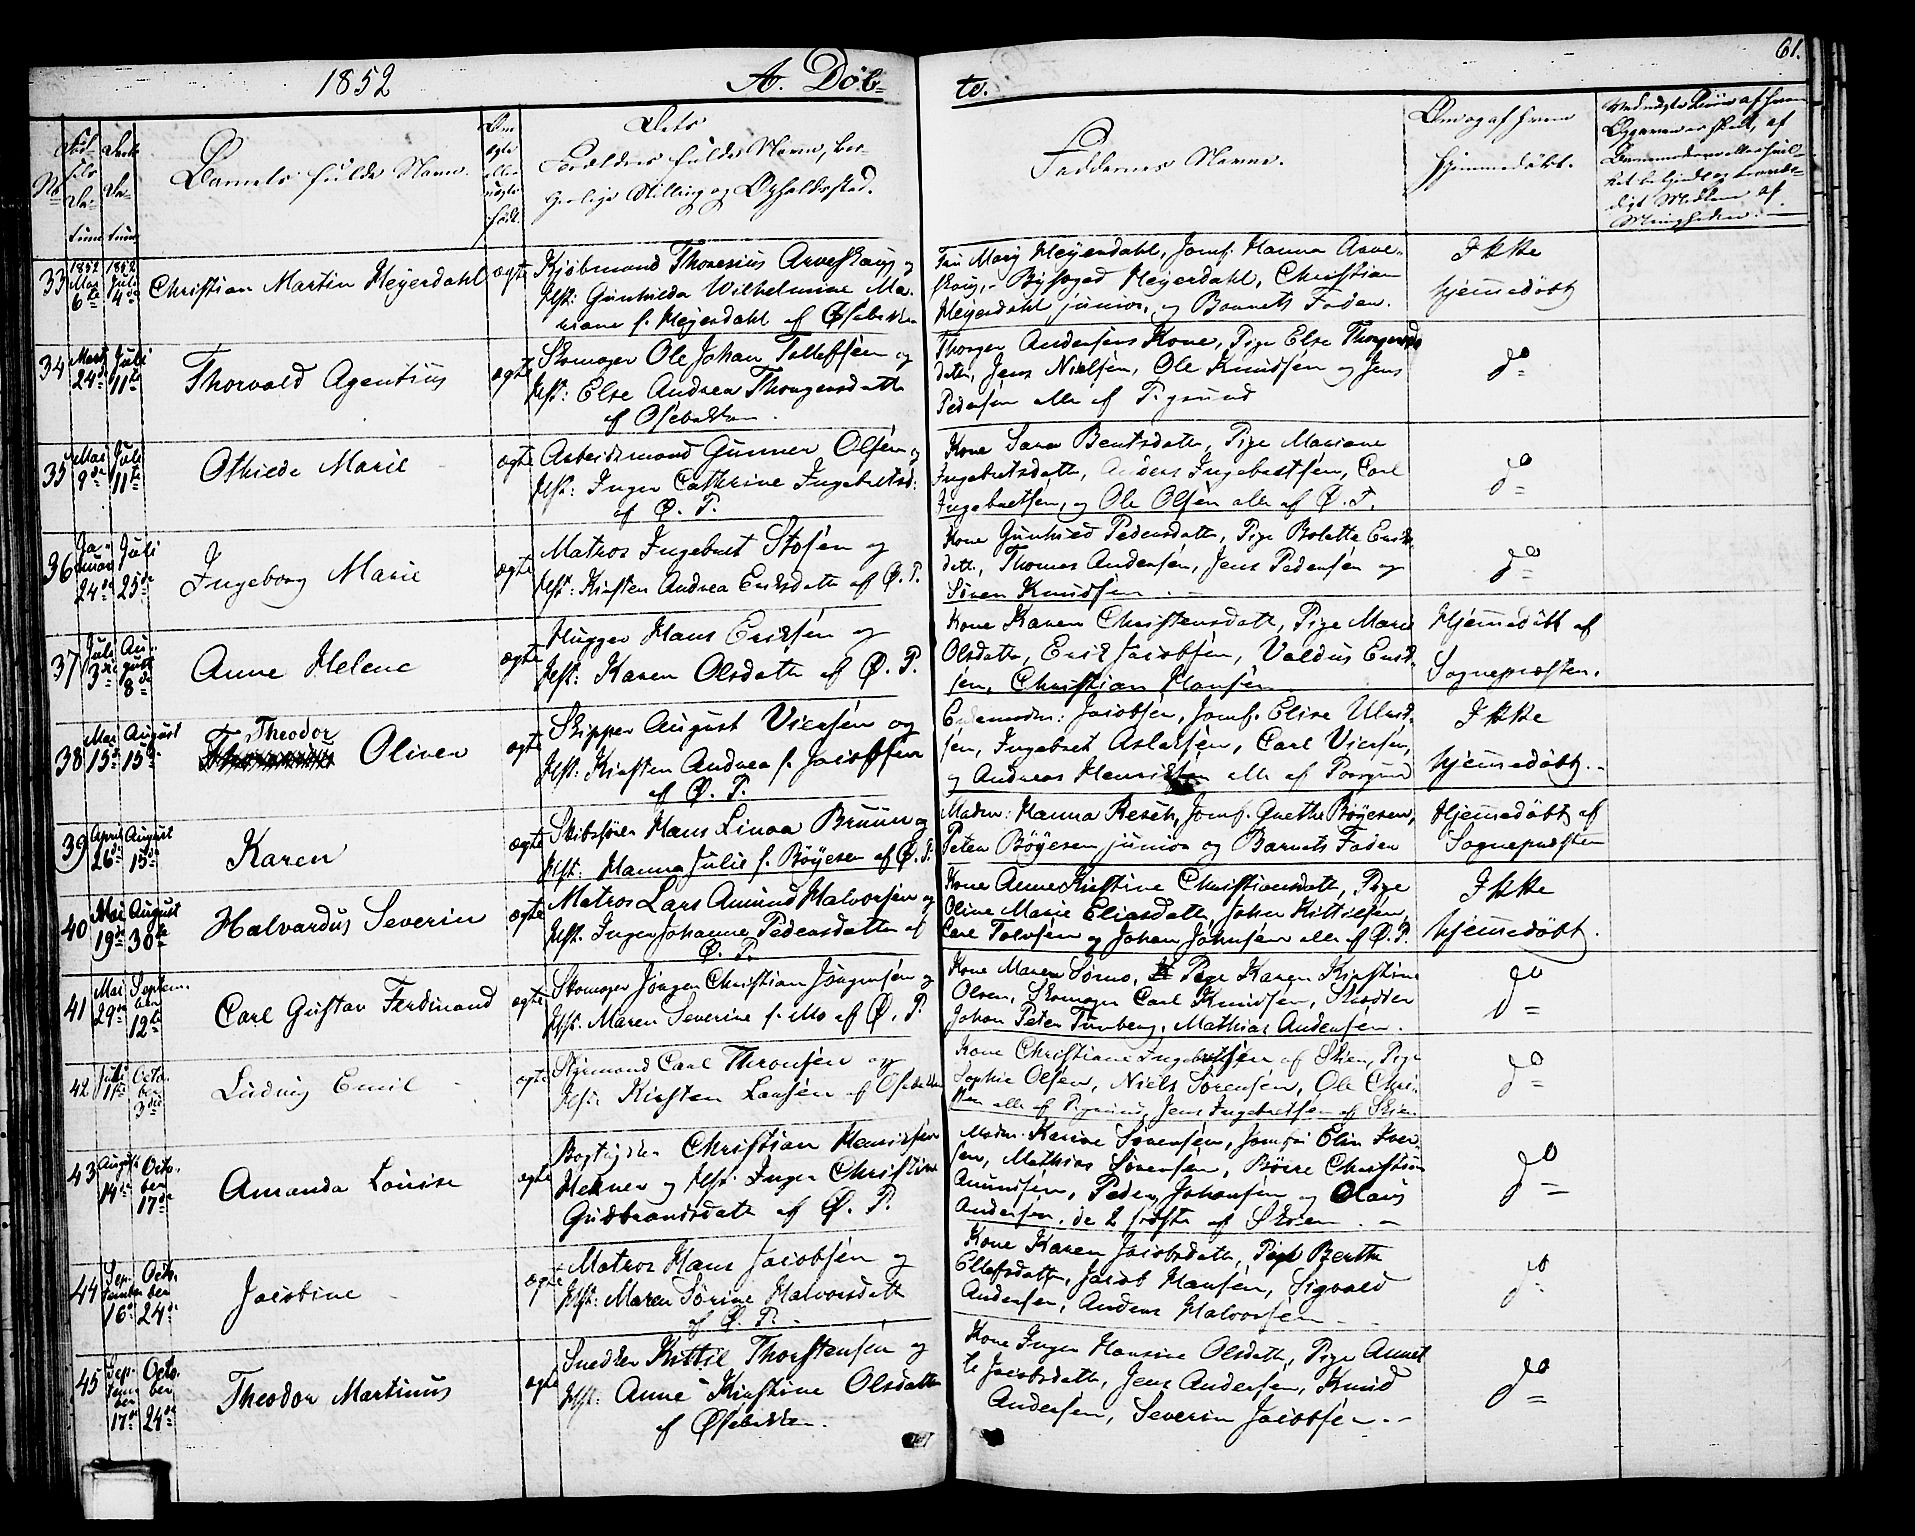 1852 A. Døb- te. 61.
No Fød- sels Da- tum
Daab Da- tum
Barnets fulde Navn.
Om ægte eller uægte født.
Dets
Forældres fulde Navn, bor-
gerlige Stilling og Opholdssted.
Faddernes Navne.
Om og af hvem
hjemmedøbt.
33 1852 Mai 6te 1852 Juli 4de Christian Martin Heyerdahl ægte
Kjøbmand Thoresius Arveskoug og
Hst: Gunhilda Wilhelmine Ma-
riane f. Heyerdahl af Øsebakken
Fru Mary Heyerdahl, Jomf. Hanna Arve-
skoug, Byfoged Heyerdahl, Christian
Heyerdahl junior, og Barnets Fader.
Ikke
hjemmedøbt
34 Marts 24de Juli 11te Thorvald Agentius ægte
Skomager Ole Johan Tollefsen og
Hst: Else Andrea Thorgersdatter
af Øsebakken.
Thorger Andersens Kone, Pige Else Thorgers
datter, Jens Nielsen, Ole Knudsen og Jens
Pedersen alle af P.grund
do
35 Mai 9de Juli 11te Othiede Marie ægte
Arbeidsmand Gunner Olsen og
Hst: Inger Cathrine Ingebretsd:
af Ø. P.
Kone Sara Bentsdatter, Pige Mariane
Ingebretsdatter, Anders Ingebretsen, Carl
Ingebretsen, og Ole Olsen alle af Ø. P.
do
36 Januar 24de Juli 25de Ingeborg Marie ægte
Matros Ingebret Stosen og
Hst: Kirsten Andrea Eriksdatter af Ø. P.
Kone Gunhild Pedersdatter, Pige Bolette Eriks
datter, Thomas Andersen, Jens Pedersen og
Søren Knudsen.
do
37 Juli 3die August 8de Anne Helene ægte
Hugger Hans Eriksen og
Hst: Karen Olsdatter af Ø. P.
Kone Karen Christensdatter, Pige Marie
Olsdatter, Erik Jacobsen, Valdus Erik-
sen, Christian Hansen
Hjemmedøbt af
Sognepræsten.
38 Mai 15de August 15de Theodor Oliver ægte
Skipper August Viersen og
Hst: Kirsten Andrea f. Jacobsen
af Ø. P.
Jacobsen, Jomf. Elise Ulrik-
sen, Ingebret Aslaksen, Carl Viersen,
og Andreas Henriksen alle af Porsgrund
Ikke
hjemmedøbt.
39 April 26de August 15de Karen ægte
Skibsfører Hans Linaa Bruun og
Hst: Hanna Julie f. Bøyesen af Ø. P.
Madm: Hanna Resch, Jomf. Grethe Bøyesen,
Peter Bøyesen junior og Barnets Fader
Hjemmedøbt af
Sognepræsten
40 Mai 19de August 30te Halvardus Severin ægte
Matros Lars Amund Halvorsen og
Hst. Inger Johanne Pedersdatter af
Ø. P.
Kone Anne Kirstine Christiansdatter, Pige
Oline Marie Eliasdatter, John Kittilsen,
Carl Tolvsen og Johan Johnsen alle af Ø. P.
Ikke
hjemmedøbt.
41 Mai 29de September 12te Carl Gustav Ferdinand ægte
Skomager Jørgen Christian Jørgensen og
Hst. Maren Severine f. Mo af Ø. P.
Kone Maren Sørno, Pige Karen Kirstine
Olsen, Skomager Carl Knudsen, Skrædder
Johan Peter Tunberg, Mathias Andersen.
do
42 Juli October 3die Ludvig Emil ægte
Styrmand Carl Thronsen og
Hst: Kirsten Larsen af Øsebakken
Kone Christiane Ingebretsen af Skien, Pige
Sophie Olsen, Niels Sørensen, Ole Chri-
sten alle af P.grund, Jens Ingebretsen af Skien
do
43 August 14de October 17de Amanda Louise ægte
Christian Henriksen
Hekner og Hst. Inger Christine
Gudbrandsdatter af Ø. P.
Madm. Karine Sørensen, Jomfru Elin Iver-
sen, Mathias Sørensen, Børre Christian
Amundsen, Peder Johansen og Olaus
Andersen, de 2 sidste af Skien.
do
44 September 16de October 24de Jacobine ægte
Matros Hans Jacobsen og
Hst: Maren Sørine Halvorsdatter
af Ø. P.
Kone Karen Jacobsdatter, Pige Berthe
Ellefsdatter, Jacob Hansen, Sigvald
Andersen, Anders Halvorsen
do
45 September 17de October 24de Theodor Martinus ægte
Snedker Kittil Thorstensen og
Hst: Anne Kirstine Olsdatter
af Øsebakken.
Kone Inger Hansine Olsdatter, Pige Annet-
te Jacobsdatter, Jens Andersen, Knud
Andersen, Severin Jacobsen.
do